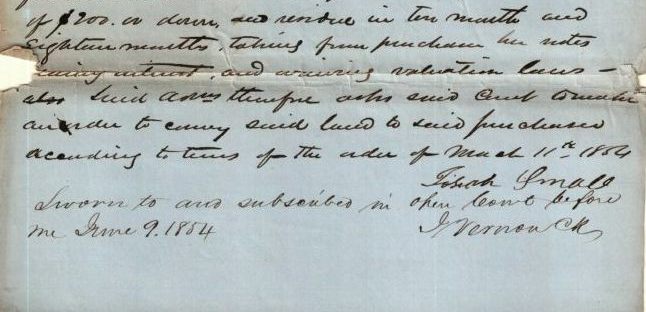 of $200.00 down, and residue in ten months and
Eighteen months, taking from purchaser his notes
bearing interest, and waiving valuation laws –
also Said Admr therefore asks said Court to make
an order to convey said land to said purchaser
according to terms of the order of March 11th 1854
Small
Sworn to and subscribed in open Court before
me June 9. 1854
Vernon Ck